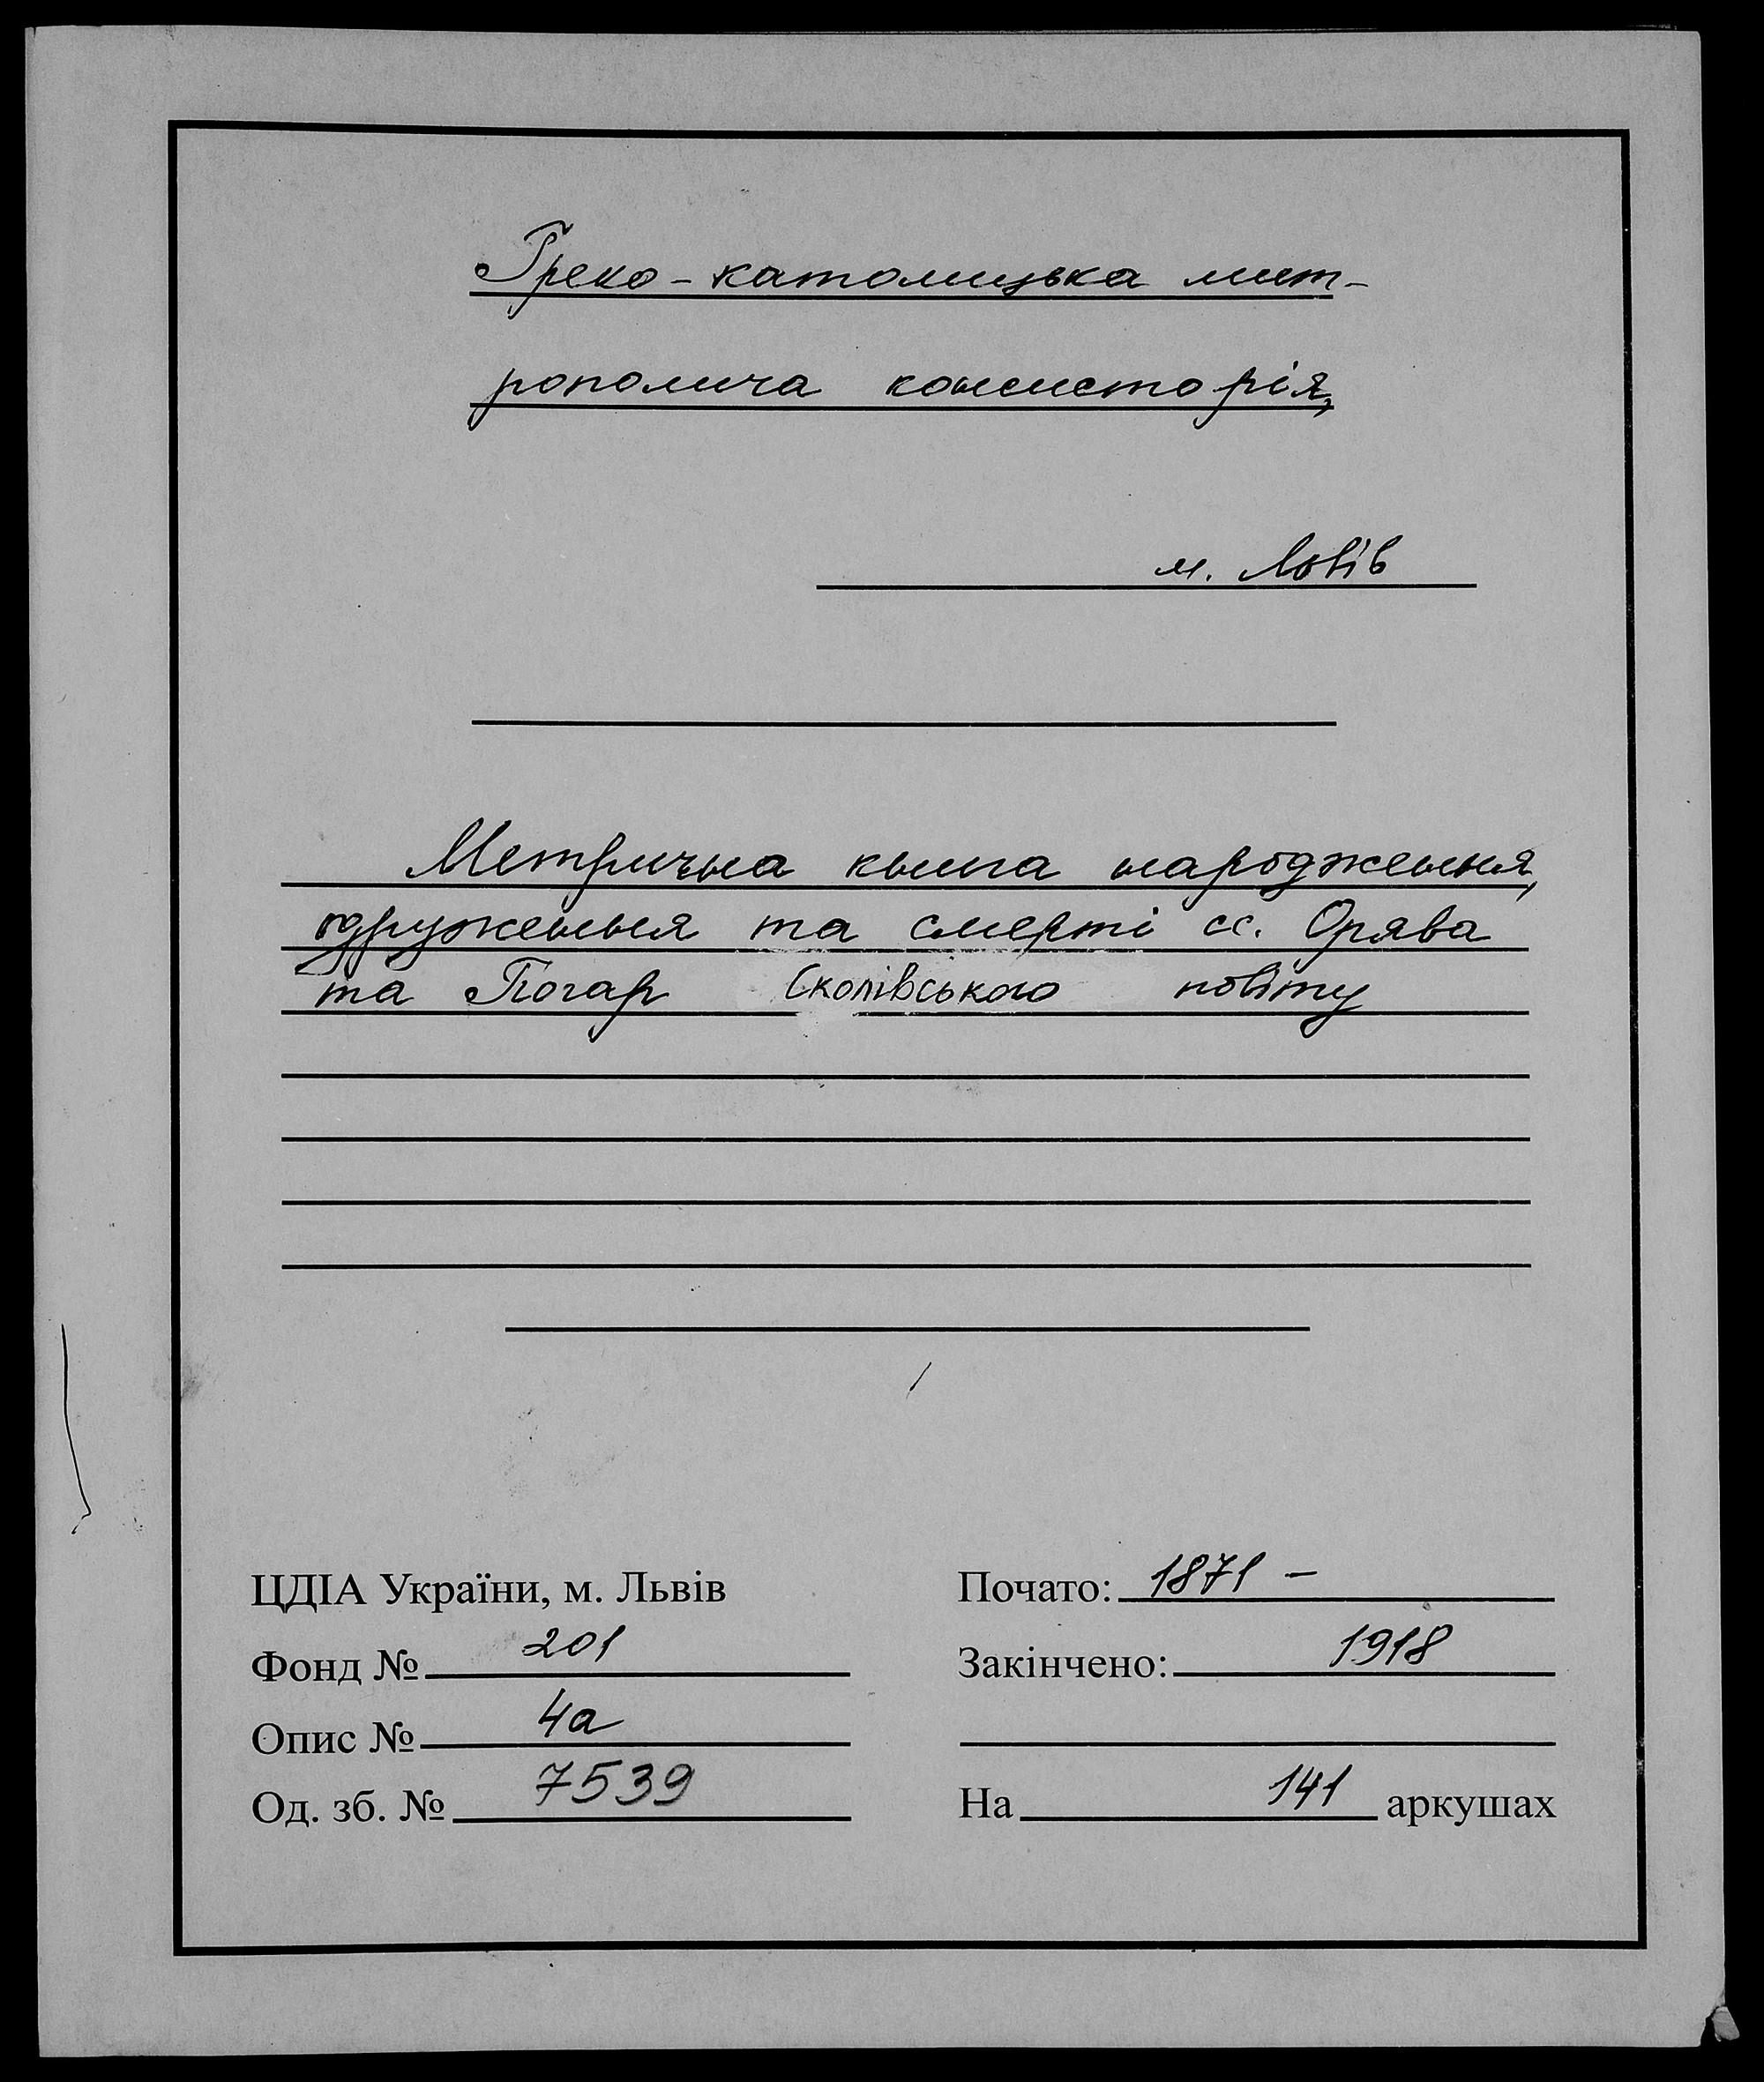 Греко-католицька мит-
рополича консисторія,
м. Львів
Метрична книга народження,
одруження та смерті сс. Орява
та Погар Сколівського повіту
ЦДІА України, м. Львів
Фонд № 201
Опис № 4а
Од. зб. № 7539
Почато: 1871 –
Закінчено: 1918
На 141 аркушах